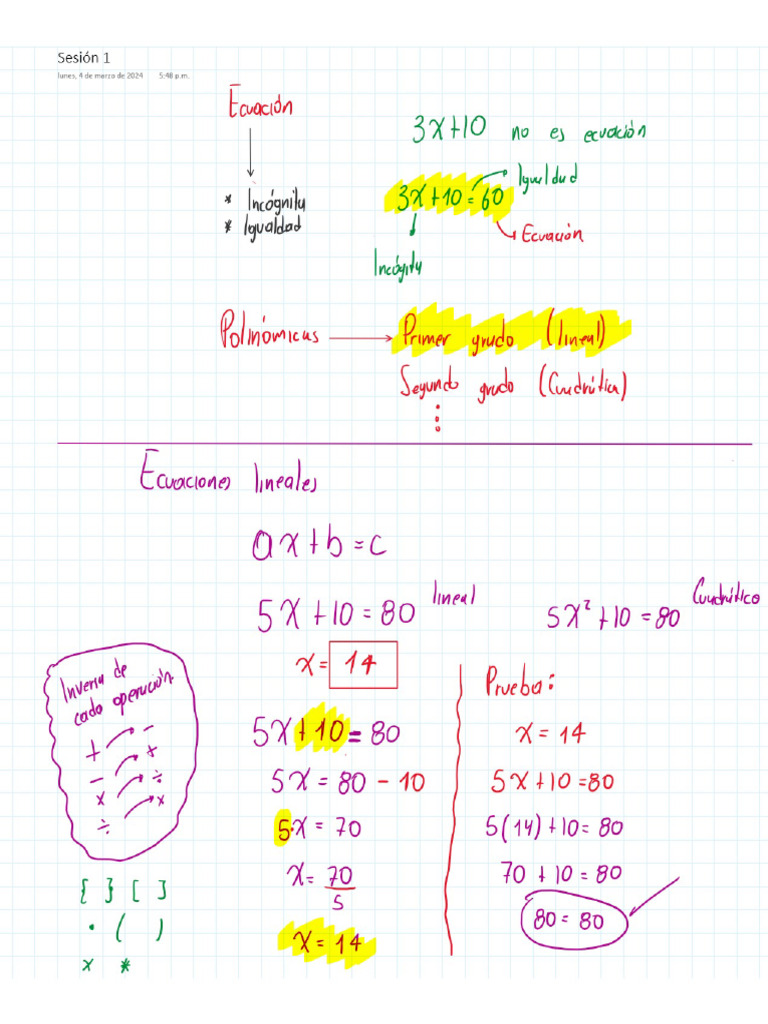 Sesión 1
lunes, 4 de marzo de 2024 5:48 p.m.
Ecuación
* Incógnita
* Igualdad
3x+10 no es ecuación
3x+10=60
Igualdad
Ecuación
Incógnita
Polinómicas → Primer grado (lineal)
Segundo grado (Cuadrática)
Ecuaciones lineales
ax+b=c
5x+10=80 lineal
5x²+10=80 Cuadrático
x= 14
Inversa de
cada operación
+ → -
- → +
x → ÷
÷ → x
{ } [ ]
· ( )
x *
5x+10=80
5x=80-10
5·x=70
x=70/5
x=14
Prueba:
x=14
5x+10=80
5(14)+10=80
70+10=80
80=80